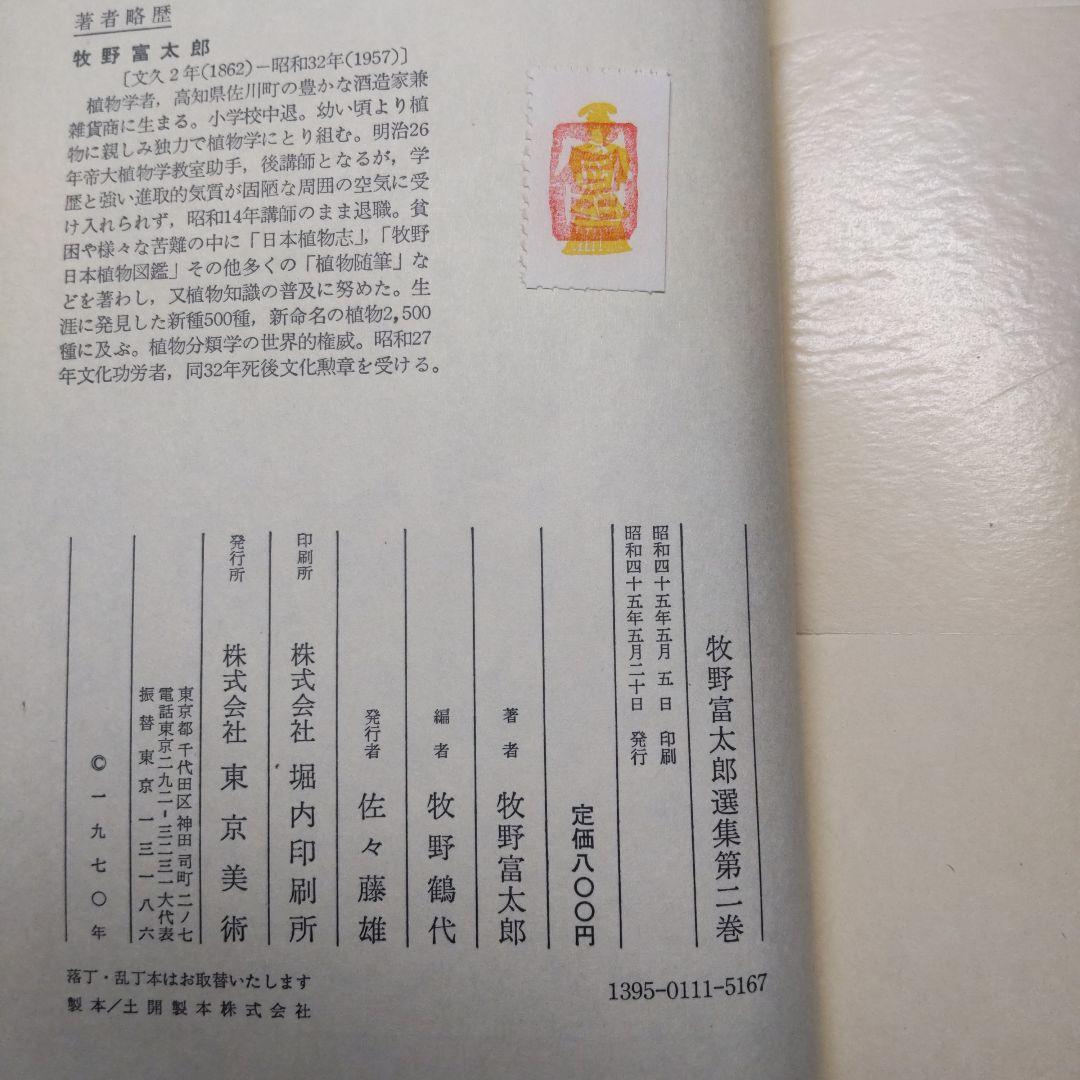 著者略歴
牧野富太郎
〔文久2年(1862)－昭和32年(1957)〕
植物学者，高知県佐川町の豊かな酒造家兼
雑貨商に生まる。小学校中退。幼い頃より植
物に親しみ独力で植物学にとり組む。明治26
年帝大植物学教室助手，後講師となるが，学
歴と強い進取的気質が固陋な周囲の空気に受
け入れられず，昭和14年講師のまま退職。貧
困や様々な苦難の中に「日本植物志」，「牧野
日本植物図鑑」その他多くの「植物随筆」な
どを著わし，又植物知識の普及に努めた。生
涯に発見した新種500種，新命名の植物2,500
種に及ぶ。植物分類学の世界的権威。昭和27
年文化功労者，同32年死後文化勲章を受ける。
牧野富太郎選集第二巻
昭和四十五年五月五日 印刷
昭和四十五年五月二十日 発行
定価八〇〇円
著者 牧野富太郎
編者 牧野鶴代
発行者 佐々藤雄
印刷所 株式会社 堀内印刷所
発行所 株式会社 東京美術
東京都千代田区神田司町二ノ七
電話東京二九二-三二三一大代表
振替東京一三一八六
©一九七〇年
1395-0111-5167
落丁・乱丁本はお取替いたします
製本/土開製本株式会社